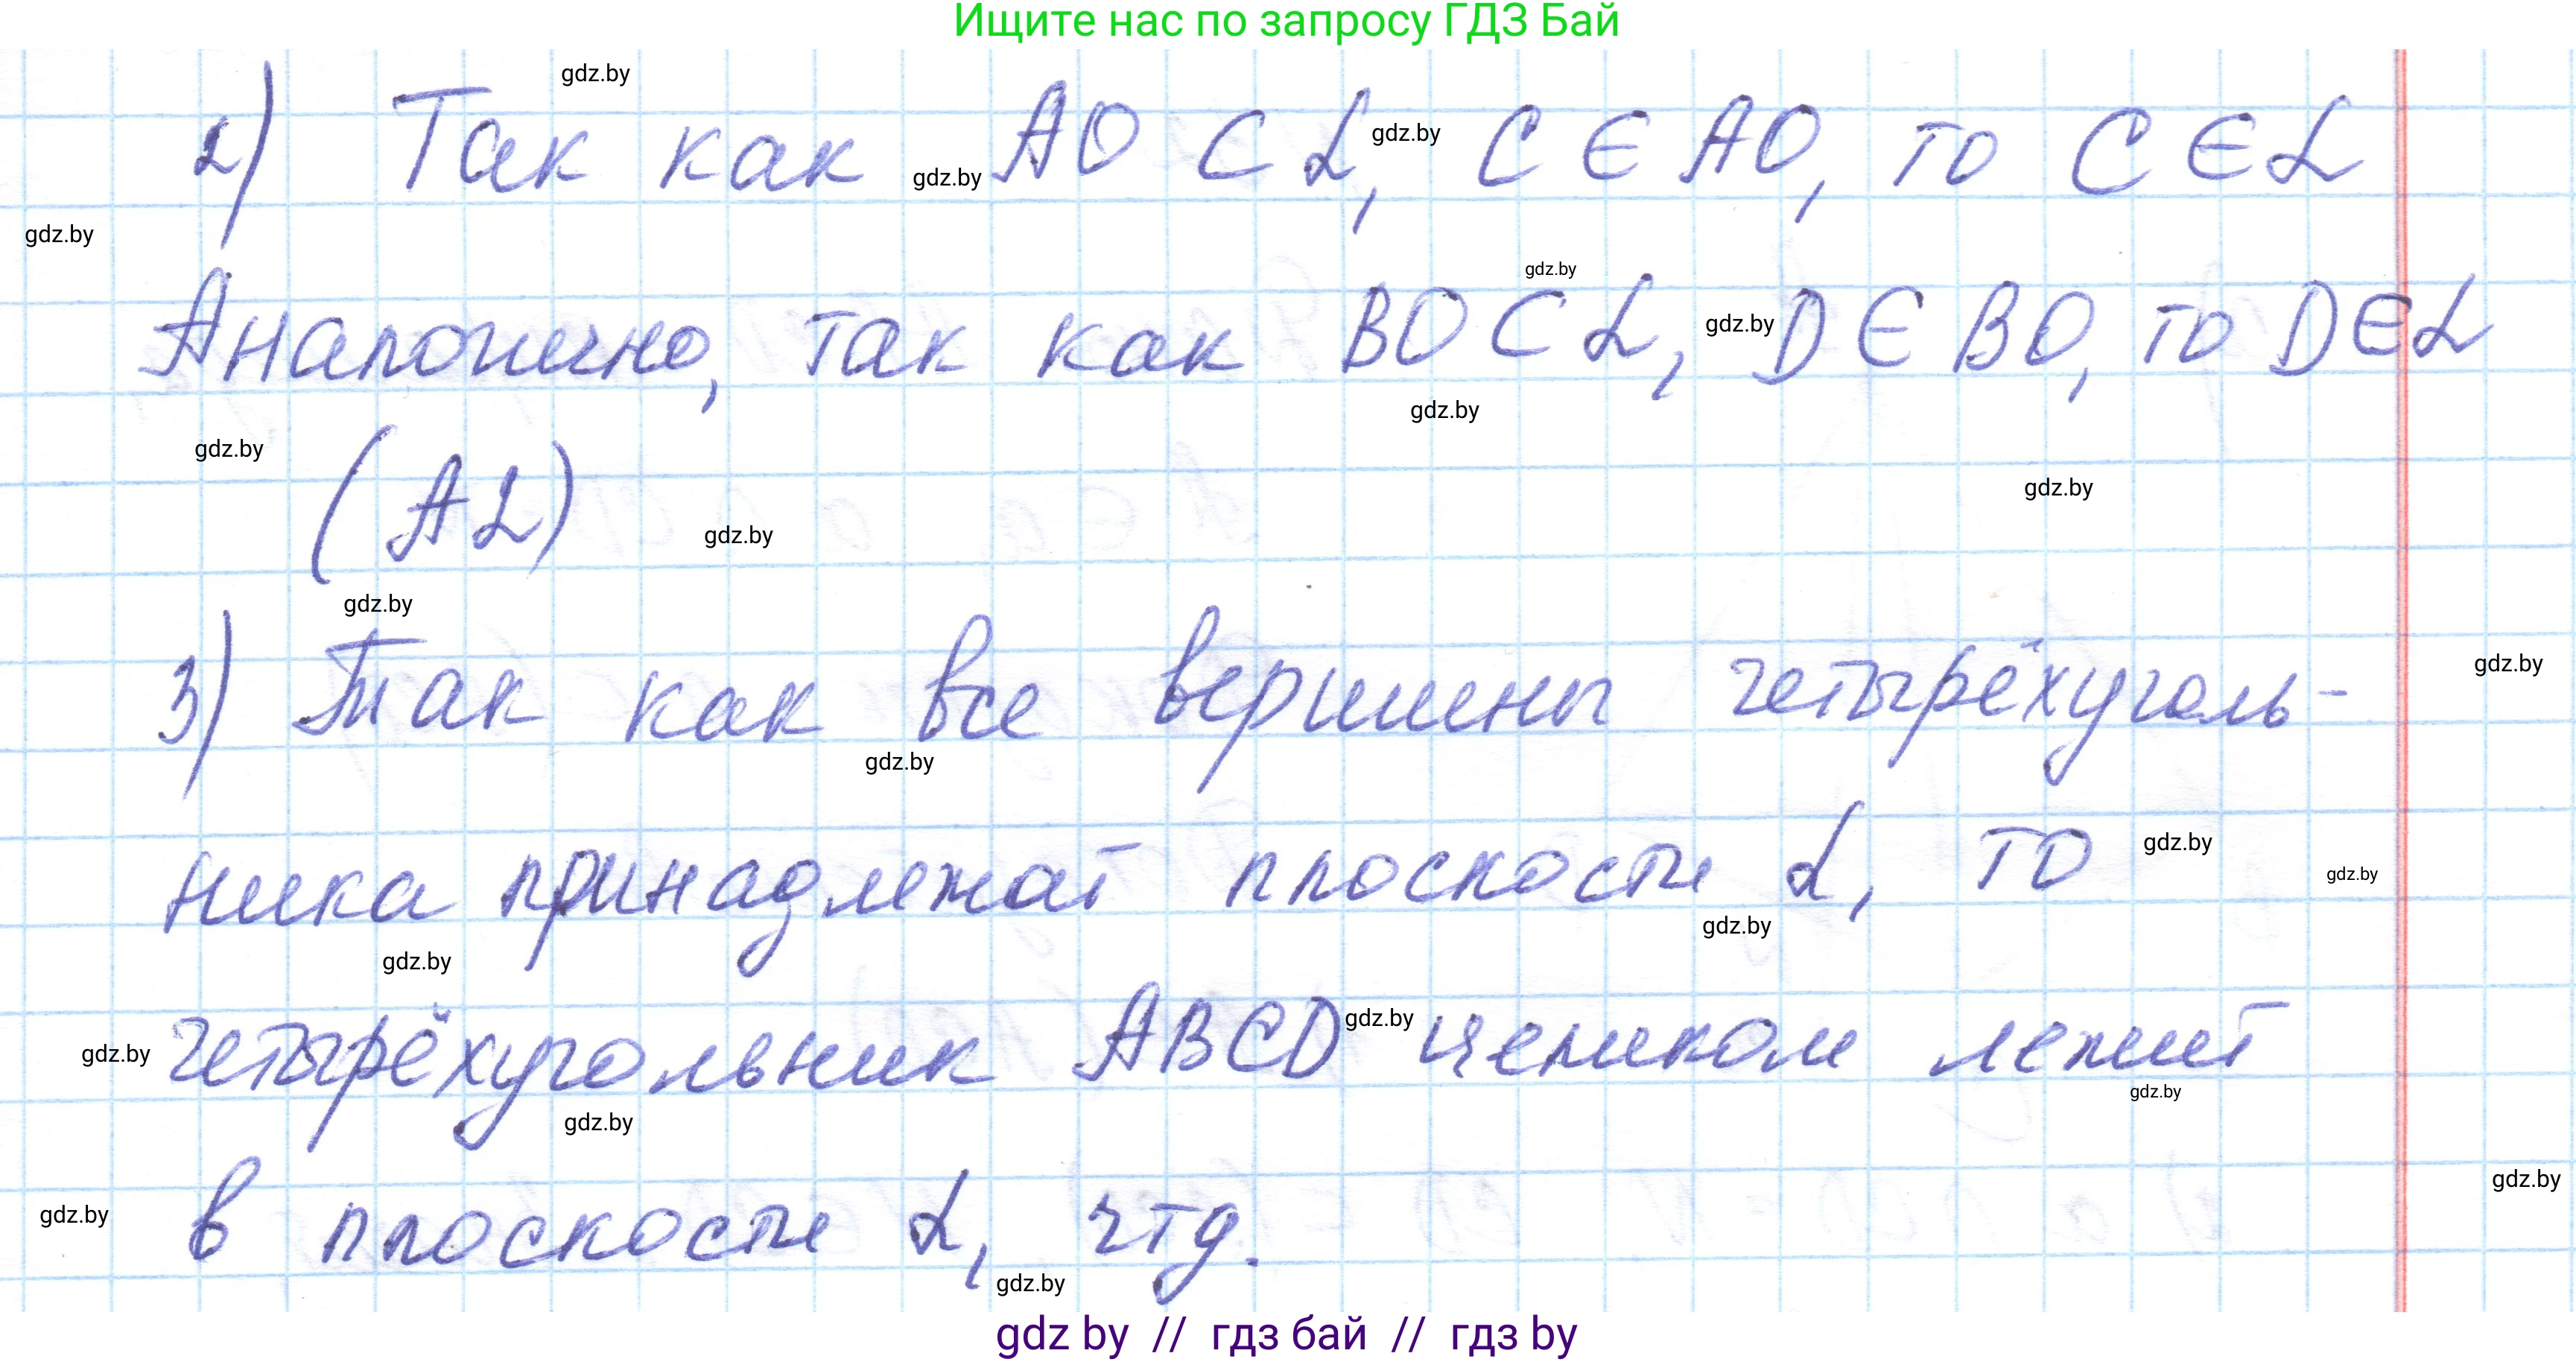 Ищите нас по запросу ГДЗ Бай
gdz.by
2) Так как AO ⊂ α, C ∈ AO, то C ∈ α
gdz.by
gdz.by
gdz.by
Аналогично, так как BO ⊂ α, D ∈ BO, то D ∈ α
gdz.by
gdz.by
gdz.by
gdz.by
(A2)
gdz.by
gdz.by
gdz.by
3) Так как все вершины четырёхуголь-
gdz.by
gdz.by
ника принадлежат плоскости α, то
gdz.by
gdz.by
gdz.by
gdz.by
четырёхугольник ABCD целиком лежит
gdz.by
gdz.by
gdz.by
gdz.by
в плоскости α, чтд.
gdz.by
gdz.by
gdz.by
gdz by // гдз бай // гдз by